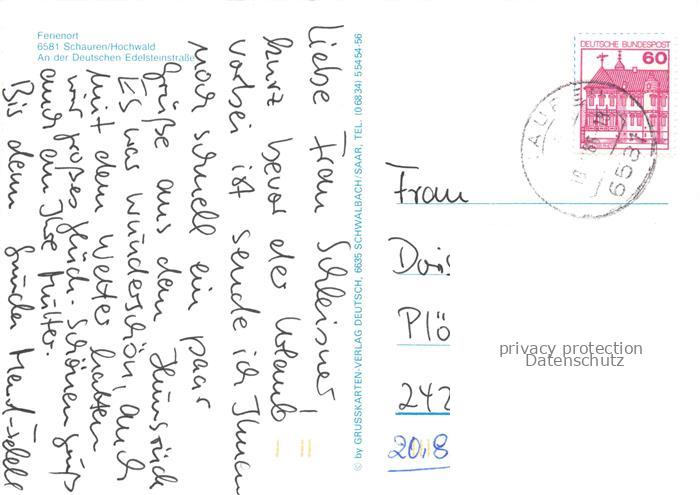 Ferienort
6581 Schauren/Hochwald
An der Deutschen Edelsteinstraße
Liebe Frau Schleisner!
kurz bevor der Urlaub
vorbei ist sende ich Ihnen
noch schnell ein paar
Grüße aus dem Hunsrück
Es war wunderschön, auch
mit dem Wetter hatten
wir großes Glück. Schönen Gruß
auch an Ihre Mutter.
Bis dann
© by GRUSSKARTEN-VERLAG DEUTSCH, 6635 SCHWALBACH/SAAR, TEL. (06834) 55454-56
DEUTSCHE BUNDESPOST
60
6581
Frau
Doris
Plö
242
20.8
privacy protection
Datenschutz